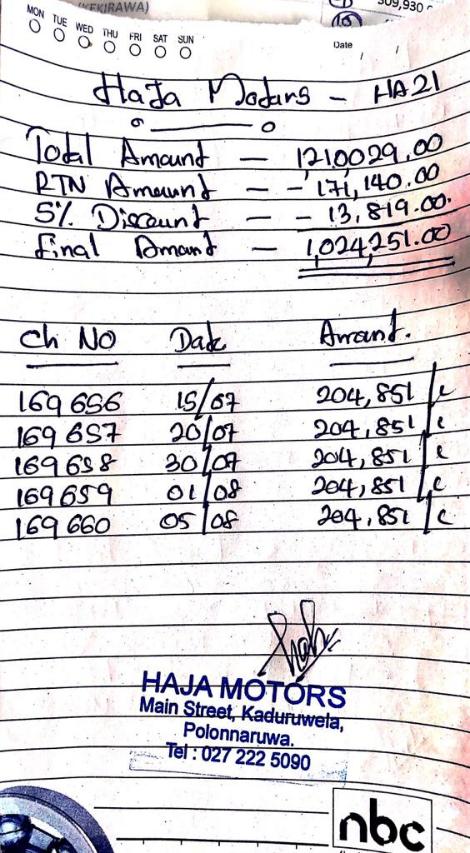 (KEKIRAWA)
309,930
MON TUE WED THU FRI SAT SUN
Date / /
HaJa Motors - HA21
Total Amount - 1210029.00
RTN Amount - - 171,140.00
5% Discount - - 13,819.00.
Final Amount - 1,024,251.00
Ch No Date Amount.
169656 15/07 204,851/c
169657 20/07 204,851/c
169658 30/07 204,851/c
169659 01/08 204,851/c
169660 05/08 204,851/c
HAJA MOTORS
Main Street, Kaduruwela,
Polonnaruwa.
Tel : 027 222 5090
nbc